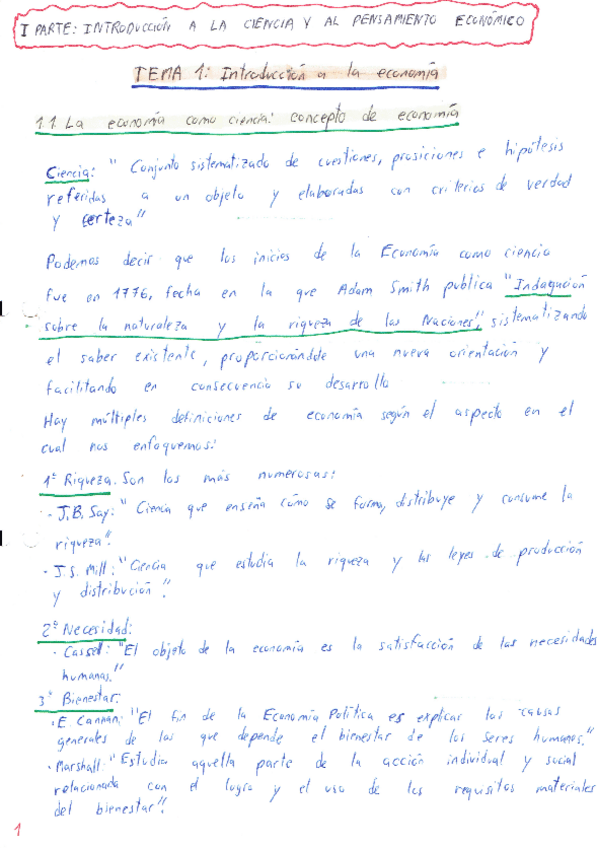 I PARTE: INTRODUCCIÓN A LA CIENCIA Y AL PENSAMIENTO ECONÓMICO
TEMA 1: Introducción a la economía
1.1 La economía como ciencia: concepto de economía
Ciencia: "Conjunto sistematizado de cuestiones, prosiciones e hipótesis
referidas a un objeto y elaboradas con criterios de verdad
y certeza"
Podemos decir que los inicios de la Economía como ciencia
fue en 1776, fecha en la que Adam Smith publica "Indagación
sobre la naturaleza y la riqueza de las Naciones", sistematizando
el saber existente, proporcionándole una nueva orientación y
facilitando en consecuencia su desarrollo
Hay múltiples definiciones de economía según el aspecto en el
cual nos enfoquemos:
1º Riqueza. Son las más numerosas:
- J.B. Say: "Ciencia que enseña cómo se forma, distribuye y consume la
riqueza".
- J.S. Mill: "Ciencia que estudia la riqueza y las leyes de producción
y distribución".
2º Necesidad:
- Cassel: "El objeto de la economía es la satisfacción de las necesidades
humanas."
3º Bienestar:
- E. Cannan: "El fin de la Economía Política es explicar las causas
generales de las que depende el bienestar de los seres humanos."
- Marshall: "Estudia aquella parte de la acción individual y social
relacionada con el logro y el uso de los requisitos materiales
del bienestar".
1